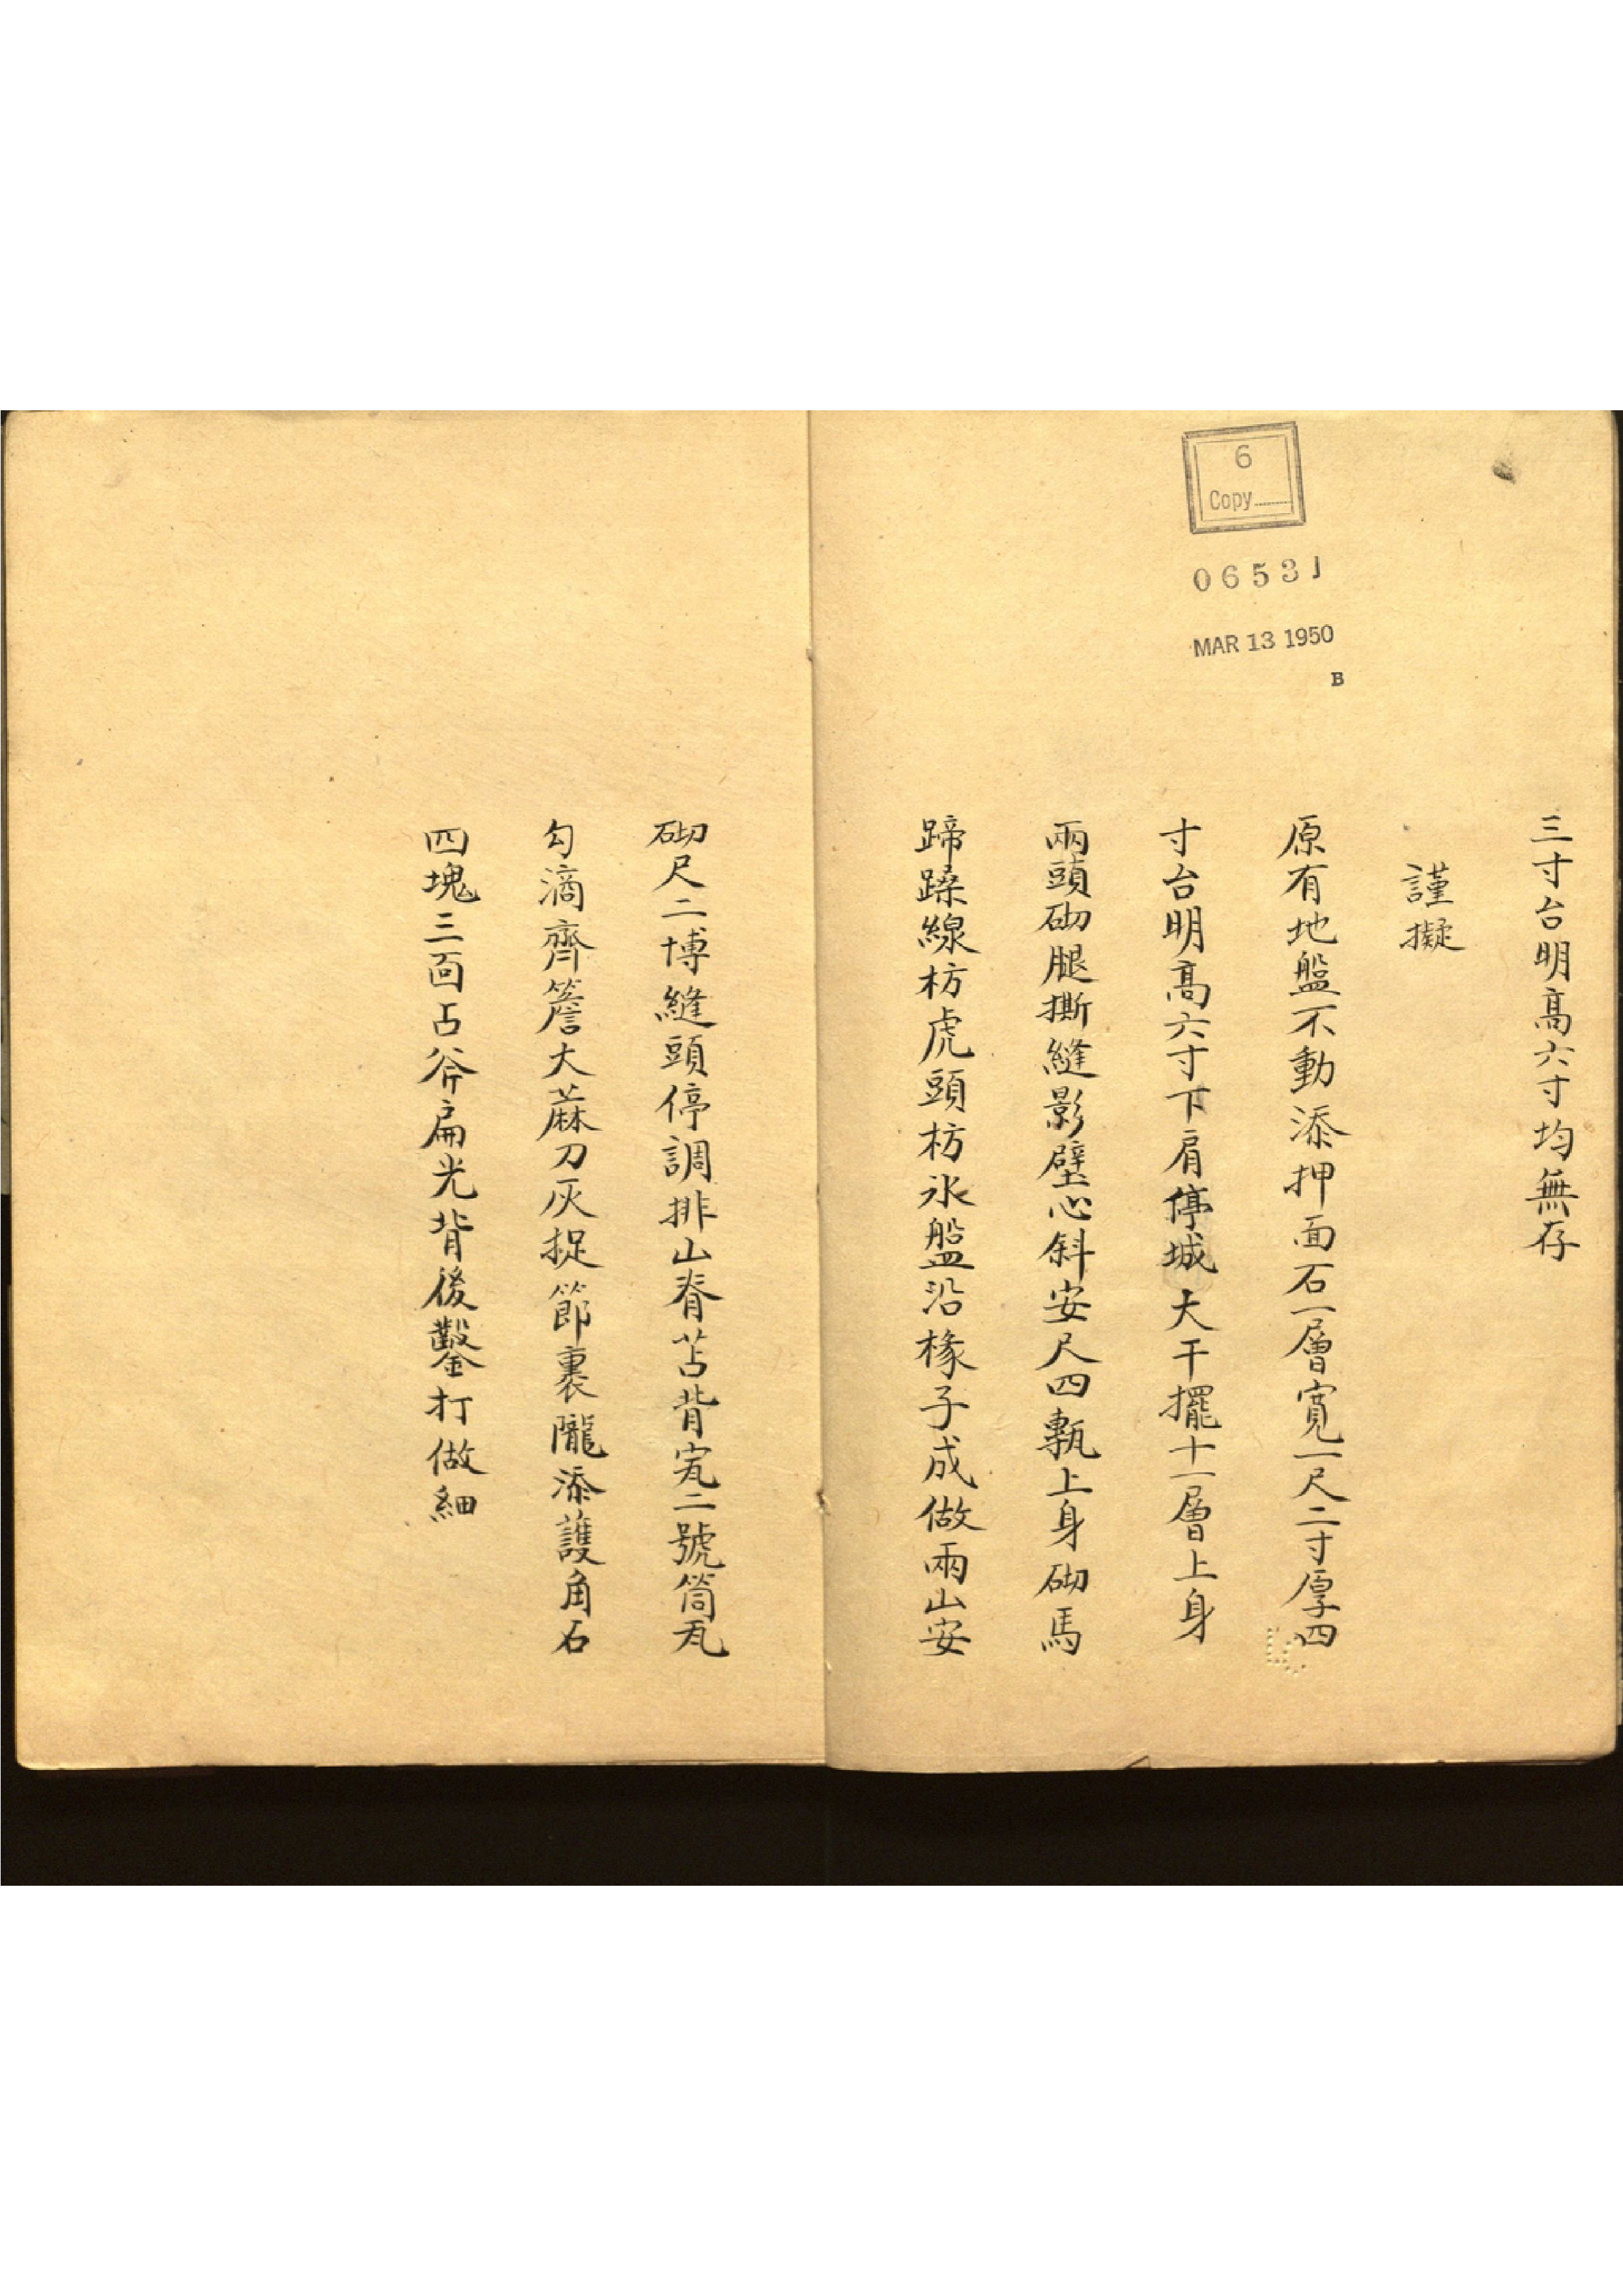 6
Copy
06531
MAR 13 1950
B
三寸台明高六寸均無存
謹擬
原有地盤不動添押面石一層寬一尺二寸厚四
寸台明高六寸下肩停城大干擺十一層上身
兩頭砌腿撕縫影壁心斜安尺四甎上身砌馬
蹄蹂線枋虎頭枋氷盤沿椽子成做兩山安
砌尺二博縫頭停調排山脊苫背宽二號筒瓦
勾滴齊簷大蔴刀灰捉節裹隴添護角石
四塊三面占斧扁光背後鑿打做細